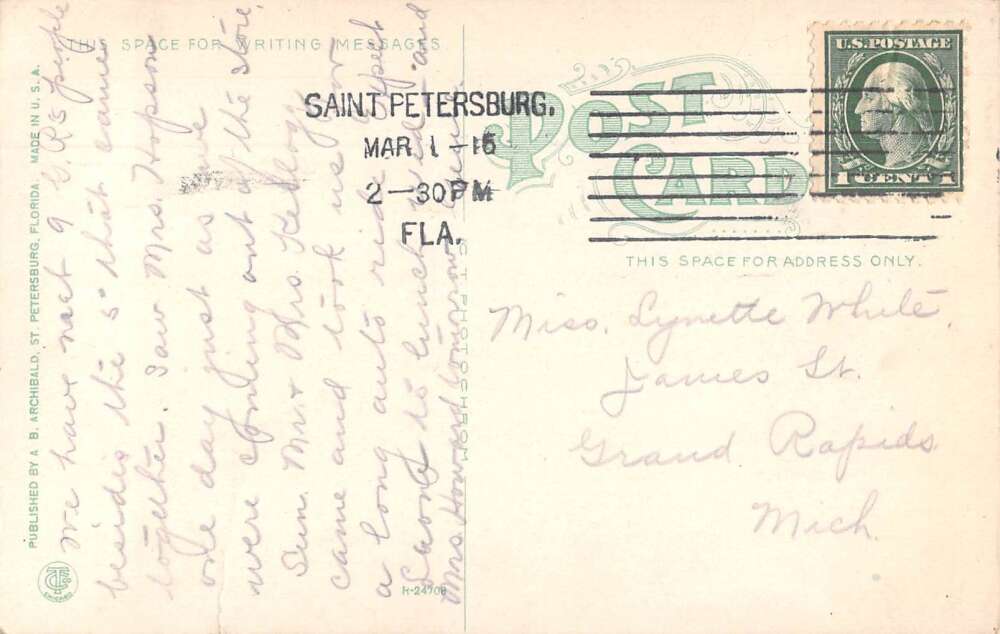 THIS SPACE FOR WRITING MESSAGES
POST
CARD
U.S. POSTAGE
1 CENT 1
SAINT PETERSBURG,
MAR 1 - 15
2 - 30 PM
FLA.
THIS SPACE FOR ADDRESS ONLY.
Miss. Lynette White.
James St.
Grand Rapids
Mich.
We have met 9 G R's people
besides the 5 that came
together. Saw Mrs. Hopson
one day just as we
were coming out of the store,
Sun. Mr. & Mrs. Kellogg
came and took us for
a long auto ride. Expect
to lunch and
Mrs. Howard tomorrow
PUBLISHED BY A. B. ARCHIBALD, ST. PETERSBURG, FLORIDA. MADE IN U. S. A.
C T PHOTOCHROM
H-24708
CHICAGO